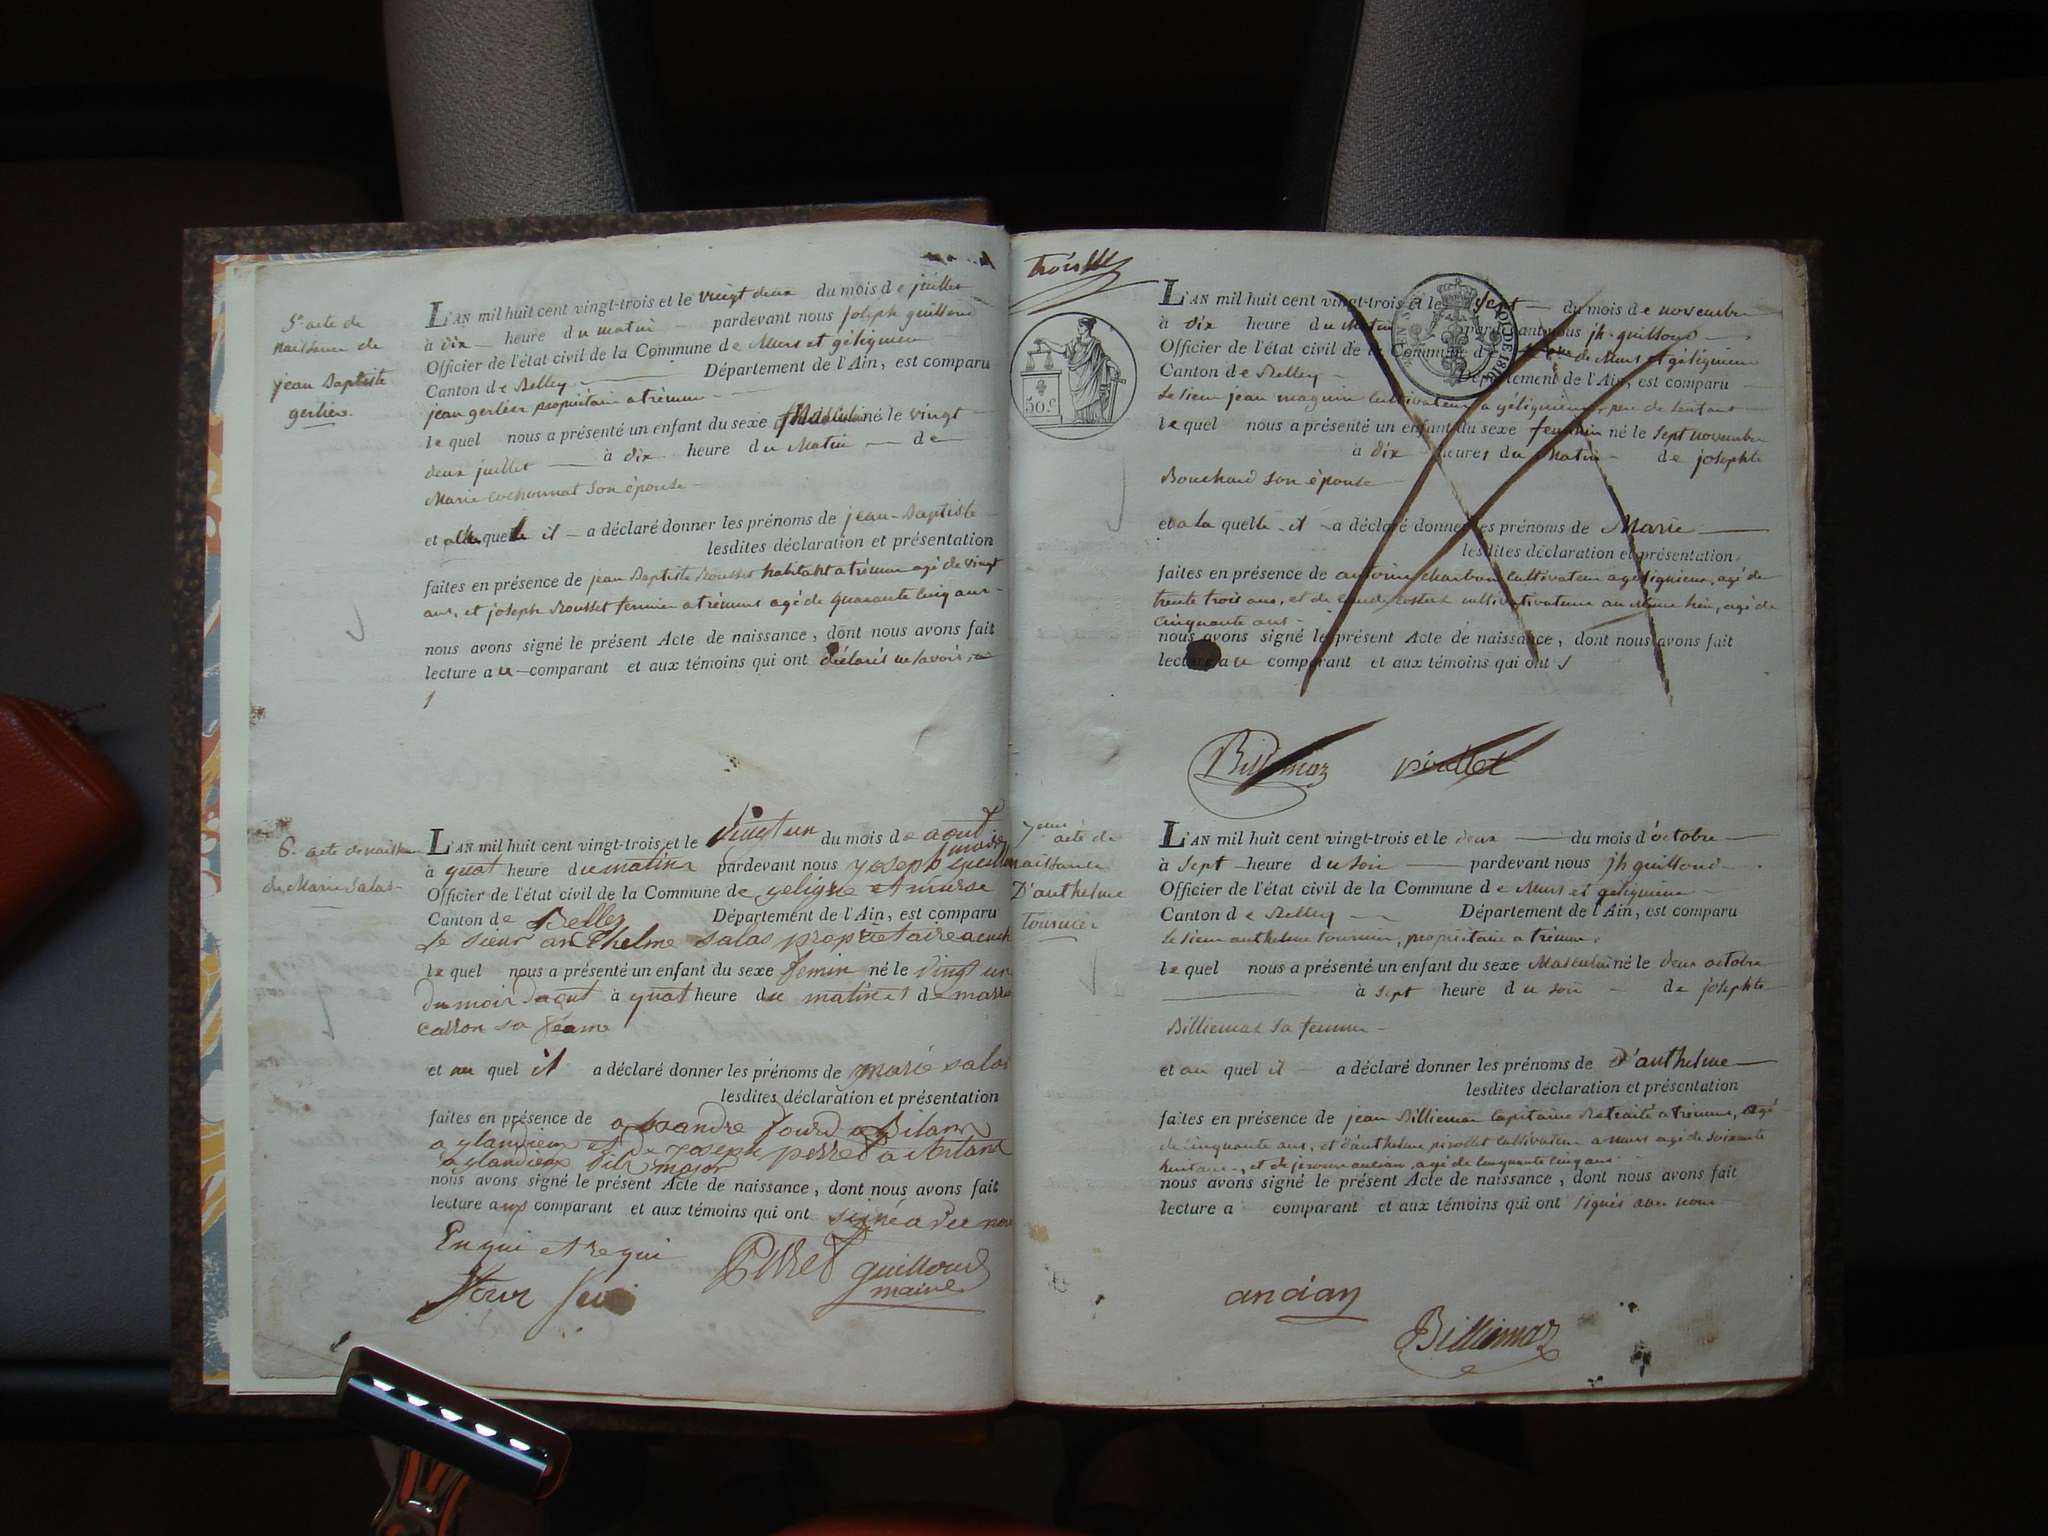 5e acte de
naissance de
jean Baptiste
gerlier.
L'AN mil huit cent vingt-trois et le vingt deux du mois de juillet
à dix heure du matin pardevant nous joseph guilloud
Officier de l'état civil de la Commune de Murs et géligneux
Canton de Belley Département de l'Ain, est comparu
jean gerlier propriétaire a trémur
le quel nous a présenté un enfant du sexe Masculin né le vingt
deux juillet à dix heure du Matin de
Marie cochonnat son épouse
et quel il a déclaré donner les prénoms de jean-Baptiste
lesdites déclaration et présentation
faites en présence de jean Baptiste Rousset habitant a trémur agé de vingt
ans, et joseph Rousset fermier a trémurs agé de quarante cinq ans
nous avons signé le présent Acte de naissance, dont nous avons fait
lecture au comparant et aux témoins qui ont déclarés ne savoir
6e acte de naissance
de Marie Salas
L'AN mil huit cent vingt-trois et le vingt un du mois de aout
à quat heure du matin pardevant nous yoseph guilloud maire
Officier de l'état civil de la Commune de geligne et murse
Canton de Belley Département de l'Ain, est comparu
le sieur anthelme salas propriétaire a
le quel nous a présenté un enfant du sexe femin né le vingt un
du mois daout à quat heure du matin et de marie
carron sa feame
et au quel il a déclaré donner les prénoms de marie salas
lesdites déclaration et présentation
faites en présence de
a glandieux et de joseph perret a
a glandieux major
nous avons signé le présent Acte de naissance, dont nous avons fait
lecture aux comparant et aux témoins qui ont signé avec nous
Perret guilloud
maire
trois
50 c
L'AN mil huit cent vingt-trois et le sept du mois de novembre
à dix heure du Matin pardevant nous jh guilloud
Officier de l'état civil de la Commune de Murs et géligneux
Canton de Belley Département de l'Ain, est comparu
le sieur jean maguin cultivateur a géligneux père de lenfant
le quel nous a présenté un enfant du sexe feminin né le sept novembre
à dix heures du Matin de josephte
Bouchard son épouse
et a la quelle il a déclaré donner les prénoms de Marie
lesdites déclaration et présentation
faites en présence de antoine charbon cultivateur a géligneux, agé de
trente trois ans, et de claude cultivativateur au même lieu, agé de
cinquante ans
nous avons signé le présent Acte de naissance, dont nous avons fait
lecture au comparant et aux témoins qui ont s
Billiemaz pirollet
7eme acte de
naissance
D'anthelme
tournier
L'AN mil huit cent vingt-trois et le deux du mois d'octobre
à sept heure du soir pardevant nous jh guilloud
Officier de l'état civil de la Commune de Murs et géligneux
Canton de Belley Département de l'Ain, est comparu
le sieur anthelme tournier, propriétaire a trémur.
le quel nous a présenté un enfant du sexe Masculin né le deux octobre
à sept heure du soir de josephte
Billiemaz sa femme
et au quel il a déclaré donner les prénoms de d'anthelme
lesdites déclaration et présentation
faites en présence de jean Billiemaz Capitaine Retraité a trémur, agé
de cinquante ans, et d'anthelme pirollet cultivateur a murs agé de soixante
huit ans, et de jerome ancian agé de cinquante cinq ans
nous avons signé le présent Acte de naissance, dont nous avons fait
lecture a comparant et aux témoins qui ont signés avec nous
ancian
Billiemaz